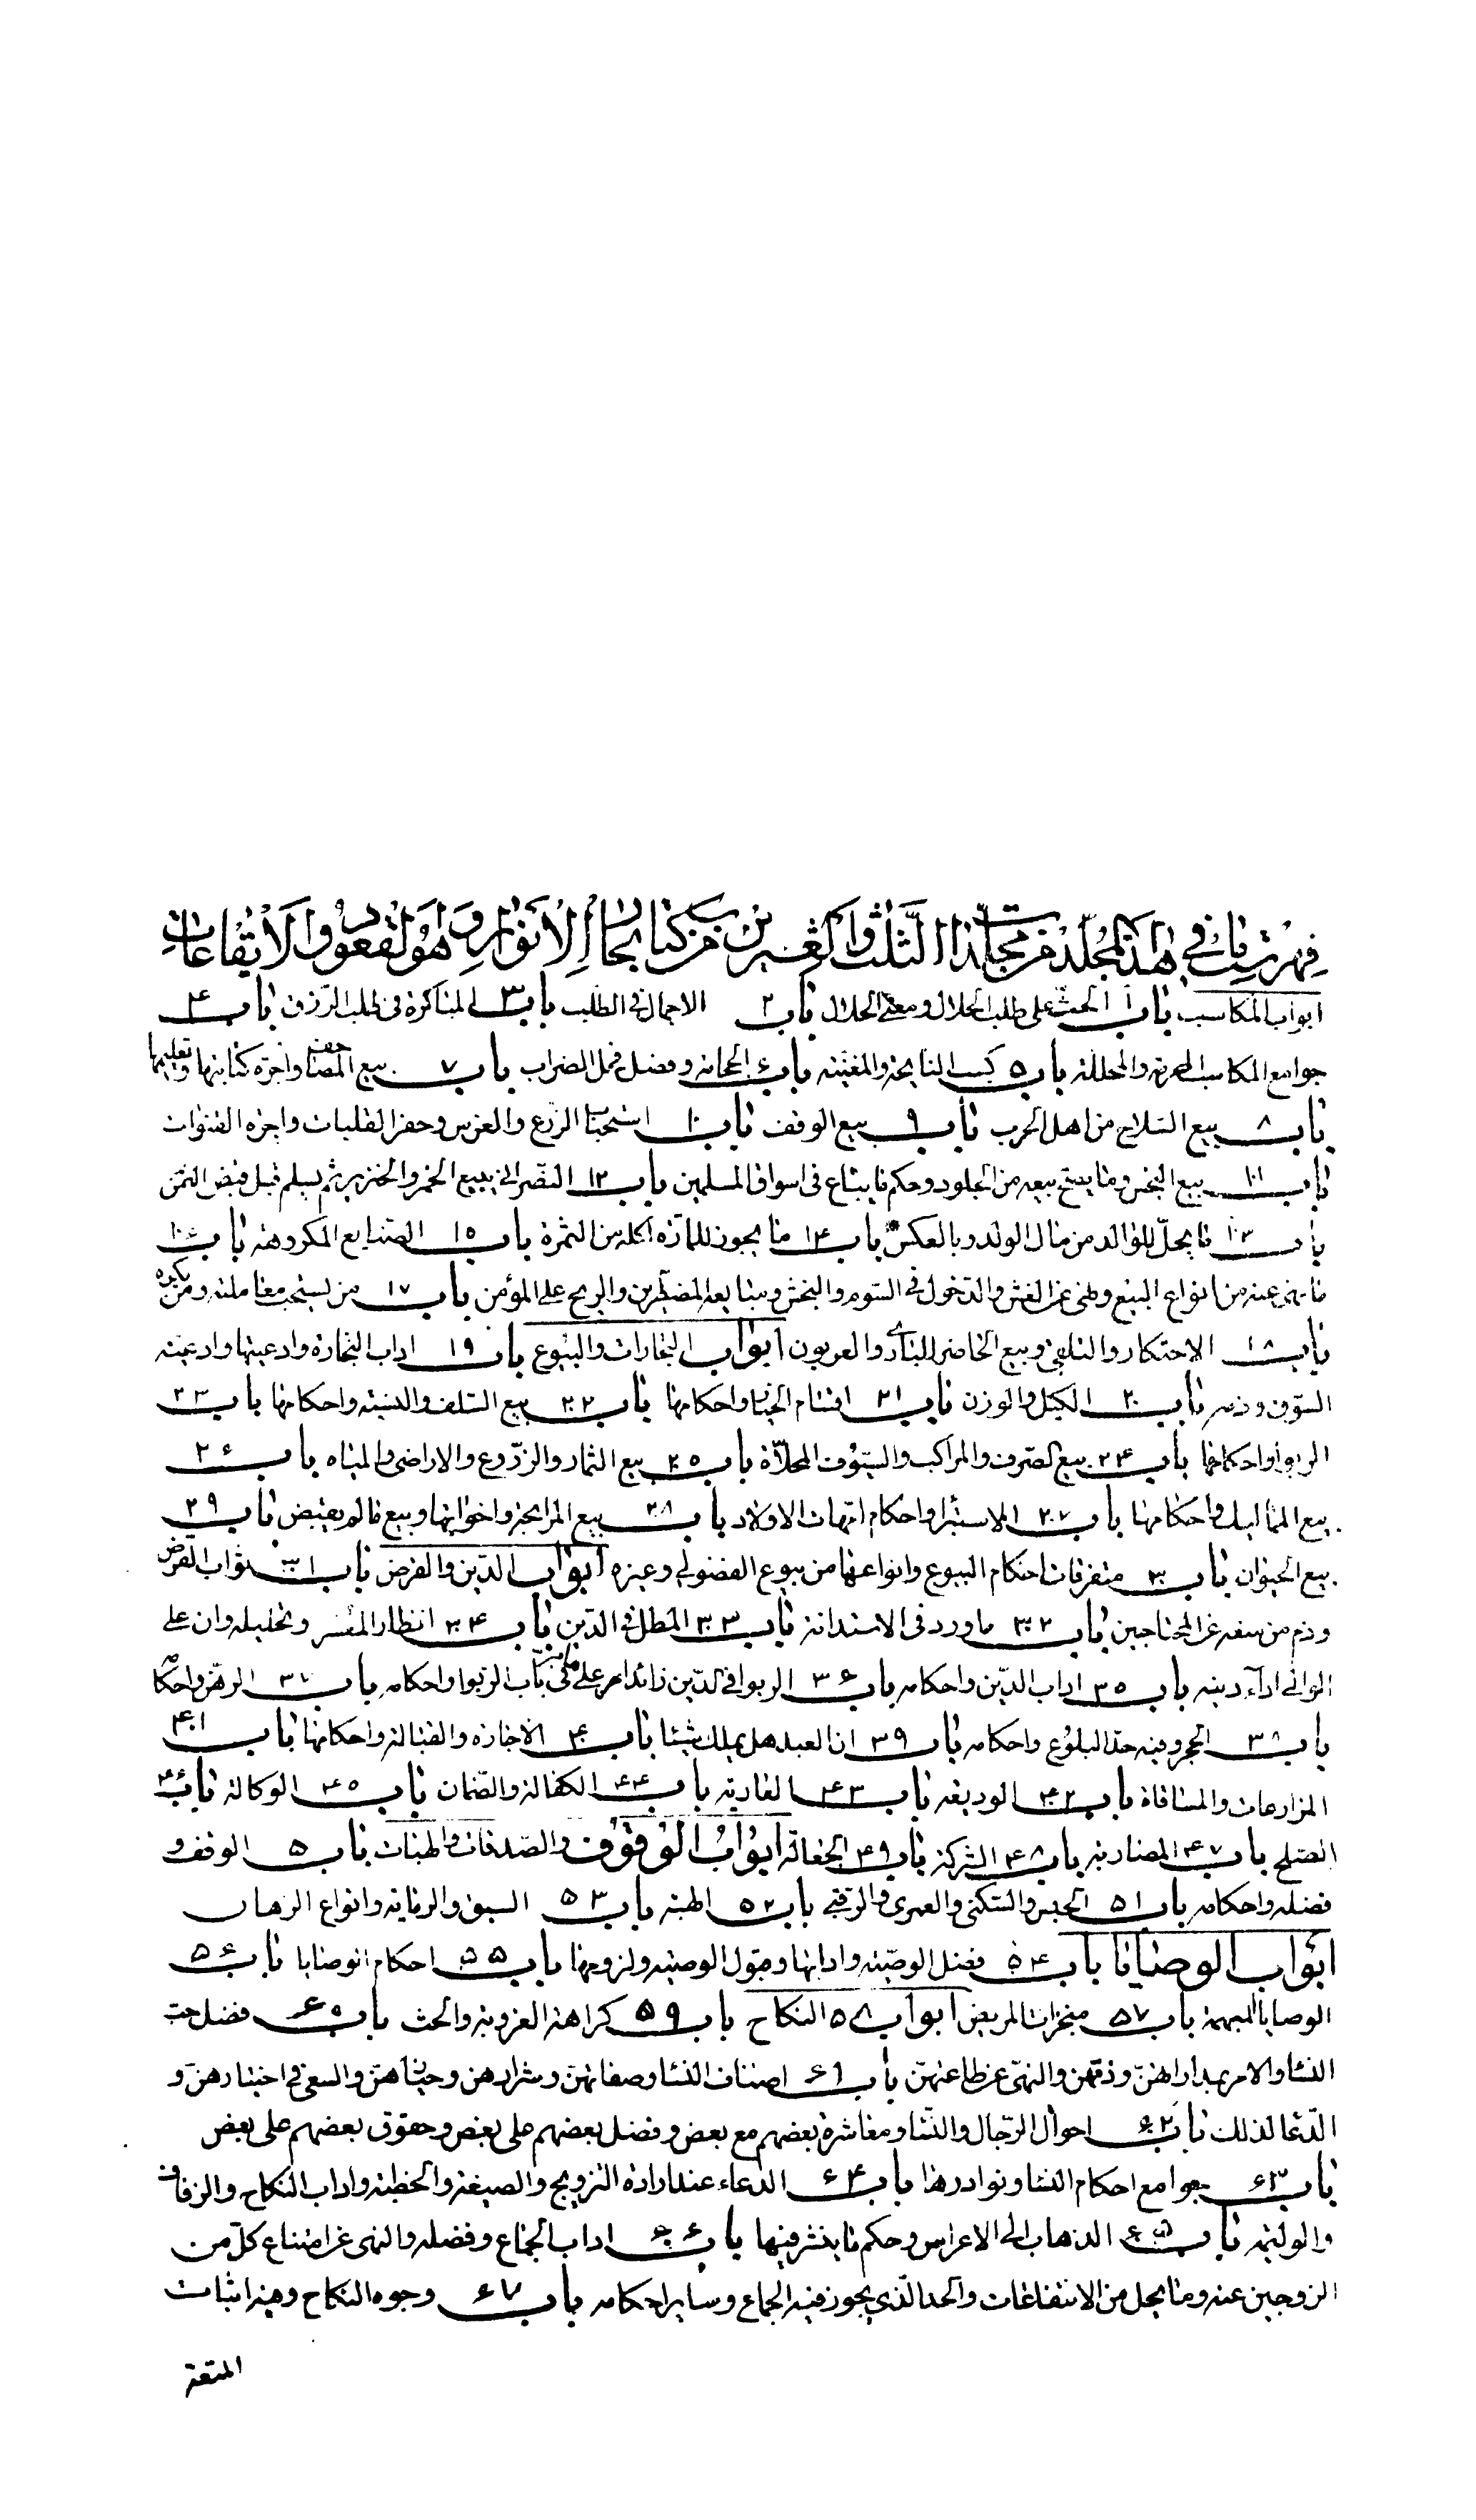 فهرست ما في هذا المجلد من مجلدات الثالث والعشرين من كتاب بحار الانوار وهو العقود والايقاعات
ابواب المكاسب باب ١ الحث على طلب الحلال ومعنى الحلال باب ٢ الاجمال في الطلب باب ٣ المباكرة في طلب الرزق باب ۴
جوامع المكاسب المحرمة والمحللة باب ۵ كسب النايحة والمغنية باب ۶ الحجامة وفحل الضراب باب ٧ بيع المصاحف واجرة كتابتها وتعليمها
باب ٨ بيع السلاح من اهل الحرب باب ٩ بيع الوقف باب ١٠ استحباب الزرع والغرس وحفر القلبات واجرة القنوات
باب ١١ بيع النجس وما يصح بيعه من الجلود وحكم ما يباع في اسواق المسلمين باب ١٢ النصراني يبيع الخمر والخنزير ثم يسلم قبل قبض الثمن
باب ١٣ ما يحل للوالد من مال الولد وبالعكس باب ١۴ ما يجوز للمارة اكله من الثمرة باب ١۵ الصنايع المكروهة باب ١۶
ما نهى عنه من انواع البيع والنهى عن الغش والدخول في السوم والنجش ومبايعة المضطرين والربح على المؤمن باب ١٧ من يستحب معاملته ومن يكره
باب ١٨ الاحتكار والتلقي وبيع الحاضر للبادي والعربون ابواب التجارات والبيوع باب ١٩ اداب التجارة وادعيتها وادعية
السوق وذمه باب ٢٠ الكيل والوزن باب ٢١ اقسام الخيار واحكامها باب ٢٢ بيع السلف والنسية واحكامها باب ٢٣
الربوا واحكامها باب ٢۴ بيع الصرف والمراكب والسيوف المحلاة باب ٢۵ بيع الثمار والزروع والاراضي والمياه باب ٢۶
بيع المماليك واحكامها باب ٢٧ الاستبراء واحكام امهات الاولاد باب ٢٨ بيع المرابحة واخواتها وبيع ما لم يقبض باب ٢٩
بيع الحيوان باب ٣٠ متفرقات احكام البيوع وانواعها من بيوع الفضولي وغيره ابواب الدين والقرض باب ٣١ ثواب القرض
وذم من منعه عن المحتاجين باب ٣٢ ما ورد في الاستدانة باب ٣٣ المطل في الدين باب ٣۴ انظار المعسر وتحليله وان على
الوالي اداء دينه باب ٣۵ اداب الدين واحكامه باب ٣۶ الربوا في الدين زائدا على ما مر في باب الربوا واحكامه باب ٣٧ الرهن واحكامه
باب ٣٨ الحجر وفيه حد البلوغ واحكامه باب ٣٩ ان العبد هل يملك شيئا باب ۴٠ الاجارة والقبالة واحكامها باب ۴١
المزارعات والمساقاة باب ۴٢ الوديعة باب ۴٣ العارية باب ۴۴ الكفالة والضمان باب ۴۵ الوكالة باب ۴۶
الصلح باب ۴٧ المضاربة باب ۴٨ الشركة باب ۴٩ الجعالة ابواب الوقوف والصدقات والهبات باب ۵ الوقف و
فضله واحكامه باب ۵١ الحبس والسكنى والعمرى والرقبى باب ۵٢ الهبة باب ۵٣ السبق والرماية وانواع الرهان
ابواب الوصايا باب ۵۴ فضل الوصية وادابها وقبول الوصية ولزومها باب ۵۵ احكام الوصايا باب ۵۶
الوصايا المبهمة باب ۵٧ منجزات المريض ابواب ۵٨ النكاح باب ۵٩ كراهة العزوبة والحث باب ۶٠ فضل حب
النساء والامر بمداراتهن وذمهن والنهي عن طاعتهن باب ۶١ اصناف النساء وصفاتهن وشرارهن وخيارهن والسعي في اختيارهن و
الدعا لذلك باب ۶٢ احوال الرجال والنساء ومعاشرة بعضهم مع بعض وفضل بعضهم على بعض وحقوق بعضهم على بعض
باب ۶٣ جوامع احكام النساء ونوادرها باب ۶۴ الدعاء عند ارادة التزويج والصيغة والخطبة واداب النكاح والزفاف
والوليمة باب ۶۵ الذهاب الى الاعراس وحكم ما ينثر فيها باب ۶۶ اداب الجماع وفضله والنهي عن امتناع كل من
الزوجين عنه وما يحل من الانتفاعات والحد الذي يجوز فيه الجماع وساير احكامه باب ۶٧ وجوه النكاح وفيه اثبات
المتعة